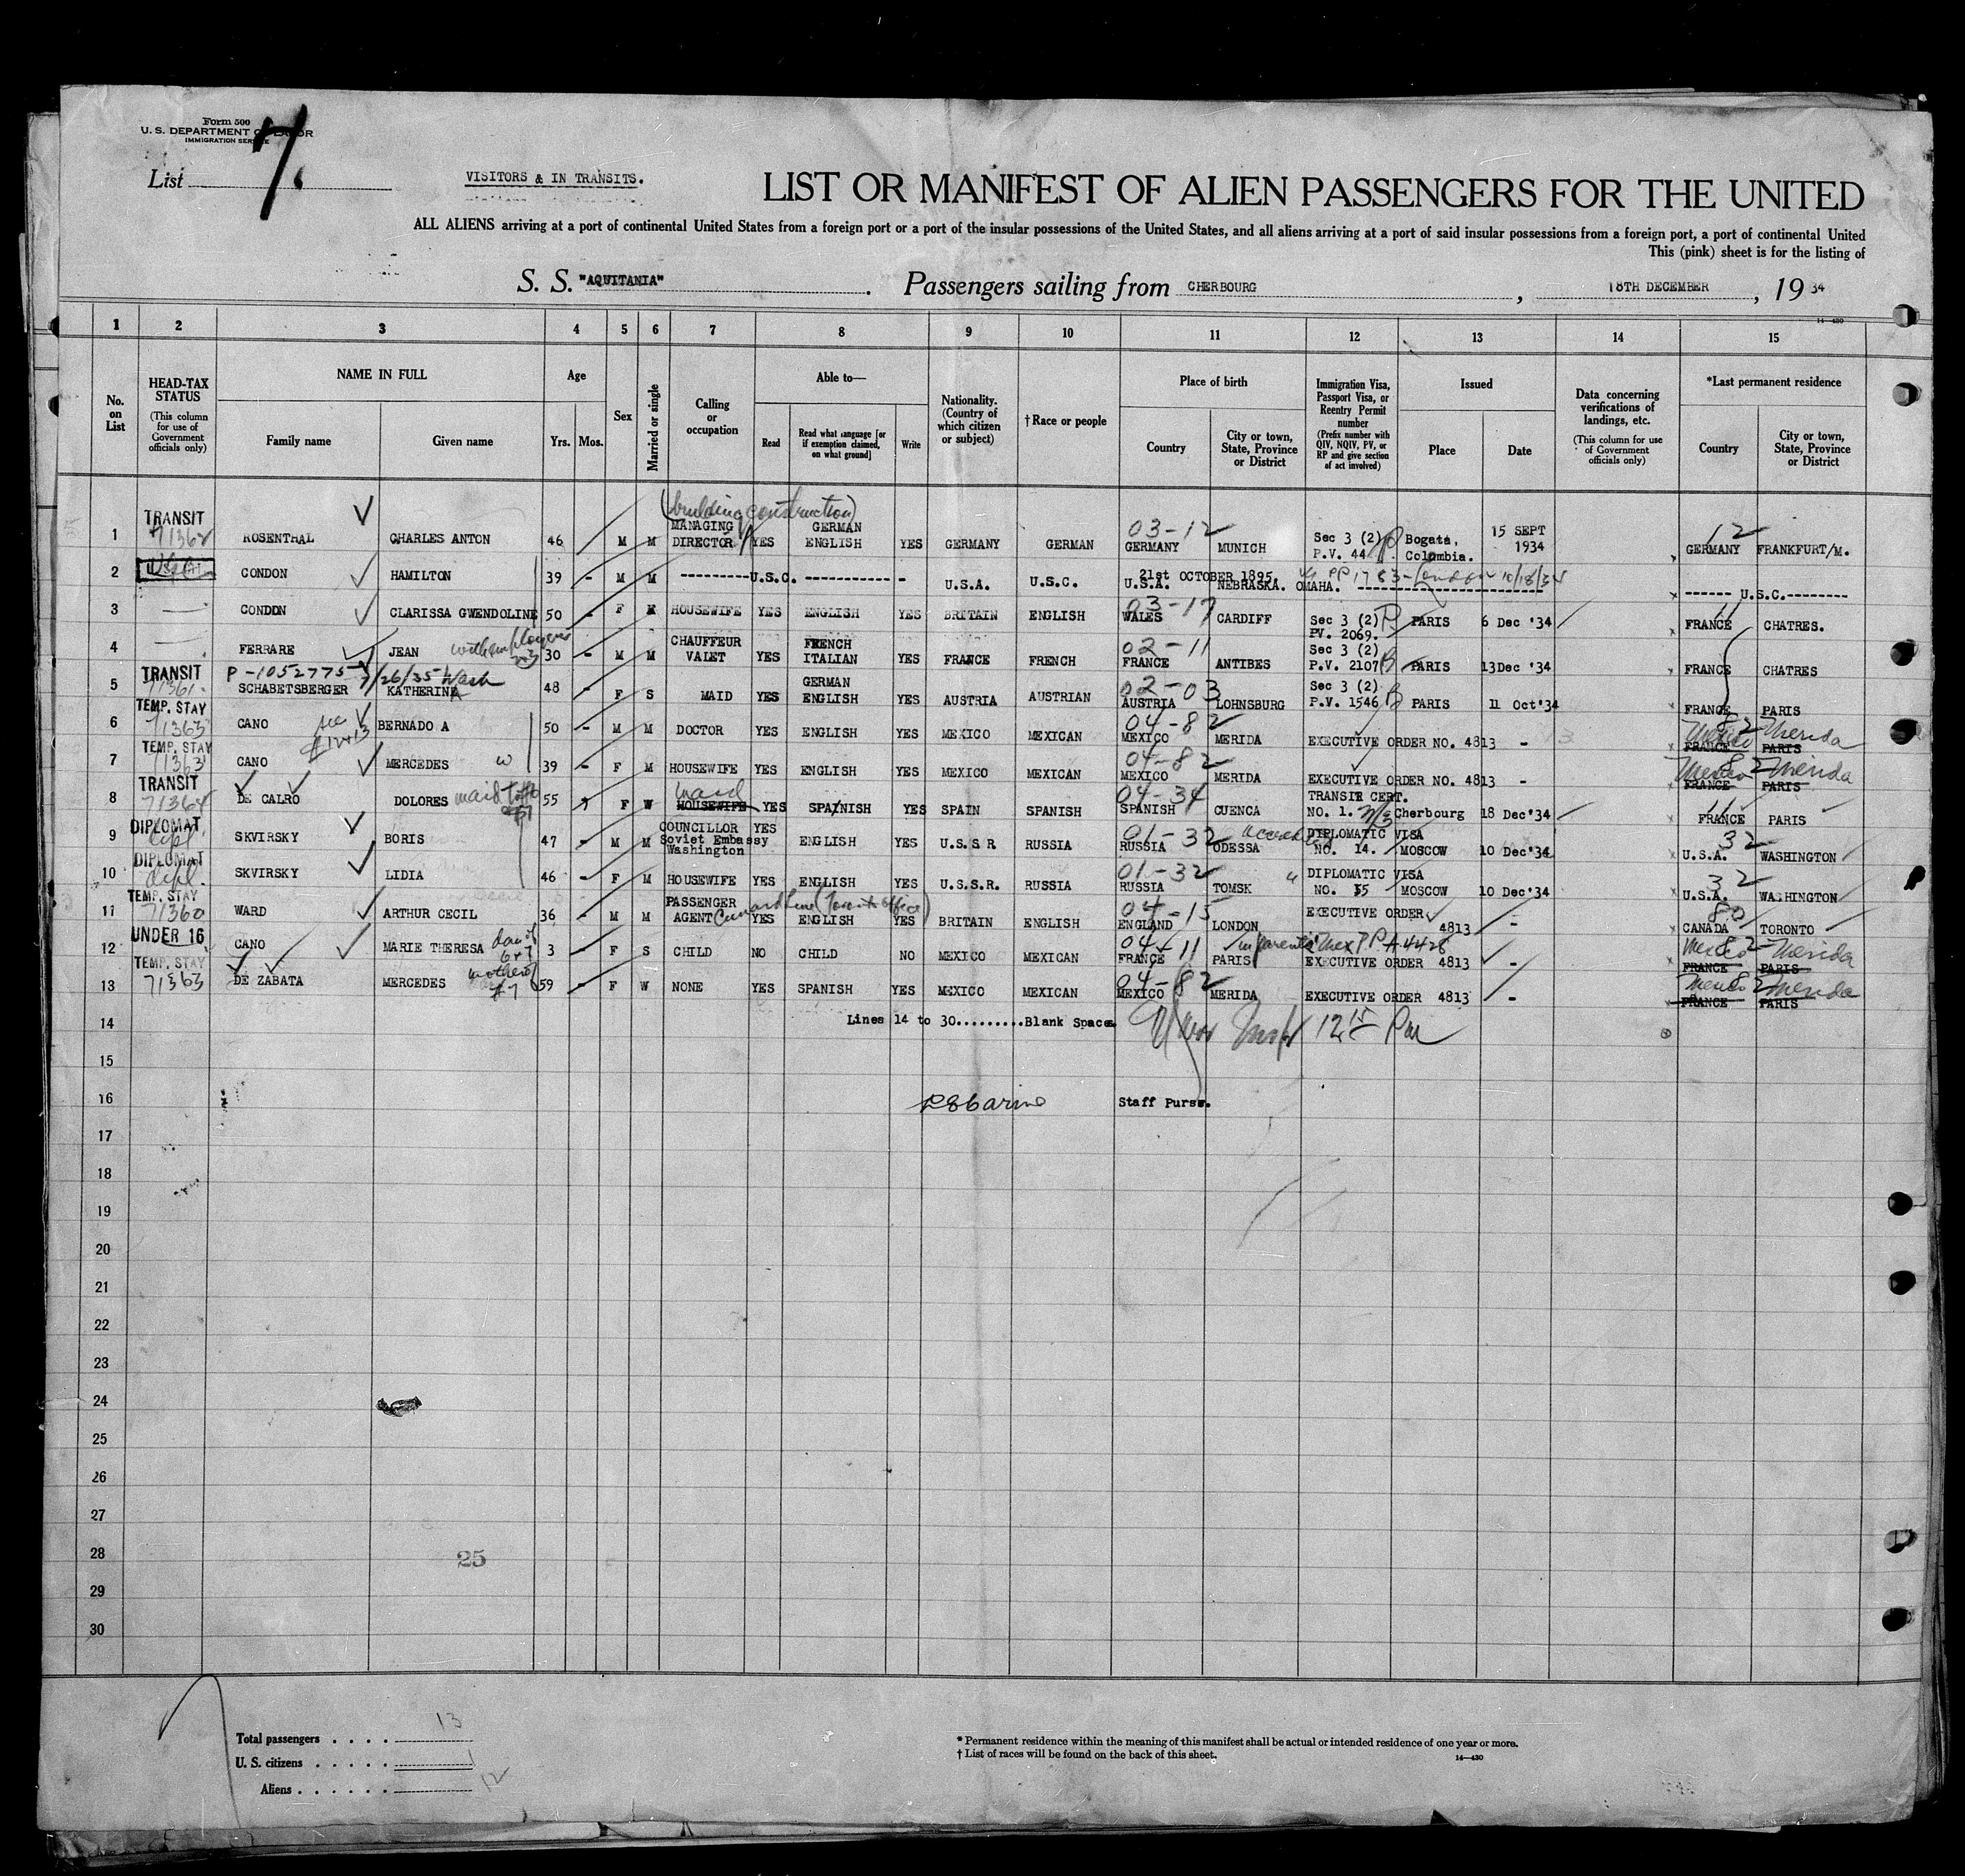 Form 500
U. S. DEPARTMENT OF LABOR
IMMIGRATION SERVICE
List 7.
VISITORS & IN TRANSITS.
LIST OR MANIFEST OF ALIEN PASSENGERS FOR THE UNITED
ALL ALIENS arriving at a port of continental United States from a foreign port or a port of the insular possessions of the United States, and all aliens arriving at a port of said insular possessions from a foreign port, a port of continental United
This (pink) sheet is for the listing of
S. S. "AQUITANIA". Passengers sailing from CHERBOURG, 18TH DECEMBER, 19 34
14-430
1 2 3 4 5 6 7 8 9 10 11 12 13 14 15
No. on List
HEAD-TAX STATUS (This column for use of Government officials only)
NAME IN FULL
Family name Given name
Age
Yrs. Mos.
Sex
Married or single
Calling or occupation
Able to—
Read Read what language [or if exemption claimed, on what ground] Write
Nationality. (Country of which citizen or subject)
† Race or people
Place of birth
Country City or town, State, Province or District
Immigration Visa, Passport Visa, or Reentry Permit number (Prefix number with QIV, NQIV, PV, or RP and give section of act involved)
Issued
Place Date
Data concerning verifications of landings, etc. (This column for use of Government officials only)
*Last permanent residence
Country City or town, State, Province or District
(building construction)
1 TRANSIT 71362 ROSENTHAL CHARLES ANTON 46 M M MANAGING DIRECTOR YES GERMAN ENGLISH YES GERMANY GERMAN 03-12 GERMANY MUNICH Sec 3 (2) P.V. 44 Bogata, Colombia. 15 SEPT 1934 12 GERMANY FRANKFURT/M.
2 CONDON HAMILTON 39 - M M ----------U.S.C. ------------ - U.S.A. U.S.C. 21st OCTOBER 1895 U.S.A. NEBRASKA. OMAHA. PP 1783-London 10/18/34 ------ U.S.C.--------
3 CONDON CLARISSA GWENDOLINE 50 - F M HOUSEWIFE YES ENGLISH YES BRITAIN ENGLISH 03-17 WALES CARDIFF Sec 3 (2) PV. 2069. PARIS 6 Dec '34 11 FRANCE CHATRES.
4 FERRARE JEAN with employer 2-3 30 - M M CHAUFFEUR VALET YES FRENCH ITALIAN YES FRANCE FRENCH 02-11 FRANCE ANTIBES Sec 3 (2) P.V. 2107 PARIS 13Dec '34 FRANCE CHATRES
P-1052775 7/26/35 Wash
5 TRANSIT 71361. SCHABETSBERGER KATHERINA 48 - F S MAID YES GERMAN ENGLISH YES AUSTRIA AUSTRIAN 02-03 AUSTRIA LOHNSBURG Sec 3 (2) P.V. 1546 PARIS 11 Oct'34 FRANCE PARIS
6 TEMP. STAY 71363 CANO see #12+13 BERNADO A 50 - M M DOCTOR YES ENGLISH YES MEXICO MEXICAN 04-82 MEXICO MERIDA EXECUTIVE ORDER NO. 4813 - 82 Mexico Merida FRANCE PARIS
7 TEMP. STAY 71363 CANO MERCEDES w 39 - F M HOUSEWIFE YES ENGLISH YES MEXICO MEXICAN 04-82 MEXICO MERIDA EXECUTIVE ORDER NO. 4813 - 82 Mexico Merida FRANCE PARIS
8 TRANSIT 71364 DE CALRO DOLORES maid to #6 55 F W maid HOUSEWIFE YES SPANISH YES SPAIN SPANISH 04-34 SPANISH CUENCA TRANSIT CERT. NO. 1. Cherbourg 18 Dec'34 11 FRANCE PARIS
9 DIPLOMAT dipl. SKVIRSKY BORIS 47 - M M COUNCILLOR Soviet Embassy Washington YES ENGLISH YES U.S.S R RUSSIA 01-32 RUSSIA ODESSA DIPLOMATIC VISA NO. 14. MOSCOW 10 Dec'34 32 U.S.A. WASHINGTON
10 DIPLOMAT dipl. SKVIRSKY LIDIA 46 - F M HOUSEWIFE YES ENGLISH YES U.S.S.R. RUSSIA 01-32 RUSSIA TOMSK " DIPLOMATIC VISA NO. 15 MOSCOW 10 Dec'34 32 U.S.A. WASHINGTON
11 TEMP. STAY 71360 WARD ARTHUR CECIL 36 - M M PASSENGER AGENT Cunard Line (Toronto office) YES ENGLISH YES BRITAIN ENGLISH 04-15 ENGLAND LONDON EXECUTIVE ORDER 4813 - 80 CANADA TORONTO
12 UNDER 16 CANO MARIE THERESA dau of 6+7 3 - F S CHILD NO CHILD NO MEXICO MEXICAN 04-11 FRANCE PARIS in parents Mex PP A4428 EXECUTIVE ORDER 4813 - 82 Mexico Merida FRANCE PARIS
13 TEMP. STAY 71363 DE ZABATA MERCEDES mother of #7 59 - F W NONE YES SPANISH YES MEXICO MEXICAN 04-82 MEXICO MERIDA EXECUTIVE ORDER 4813 - 82 Mexico Merida FRANCE PARIS
14 Lines 14 to 30.........Blank Spaces. Insp 12 15 Pm
15
16 Staff Purser.
17
18
19
20
21
22
23
24
25
26
27
28
25
29
30
Total passengers . . . . 13
U. S. citizens . . . . . 1
Aliens . . . . . . 12
* Permanent residence within the meaning of this manifest shall be actual or intended residence of one year or more.
† List of races will be found on the back of this sheet.
14—430